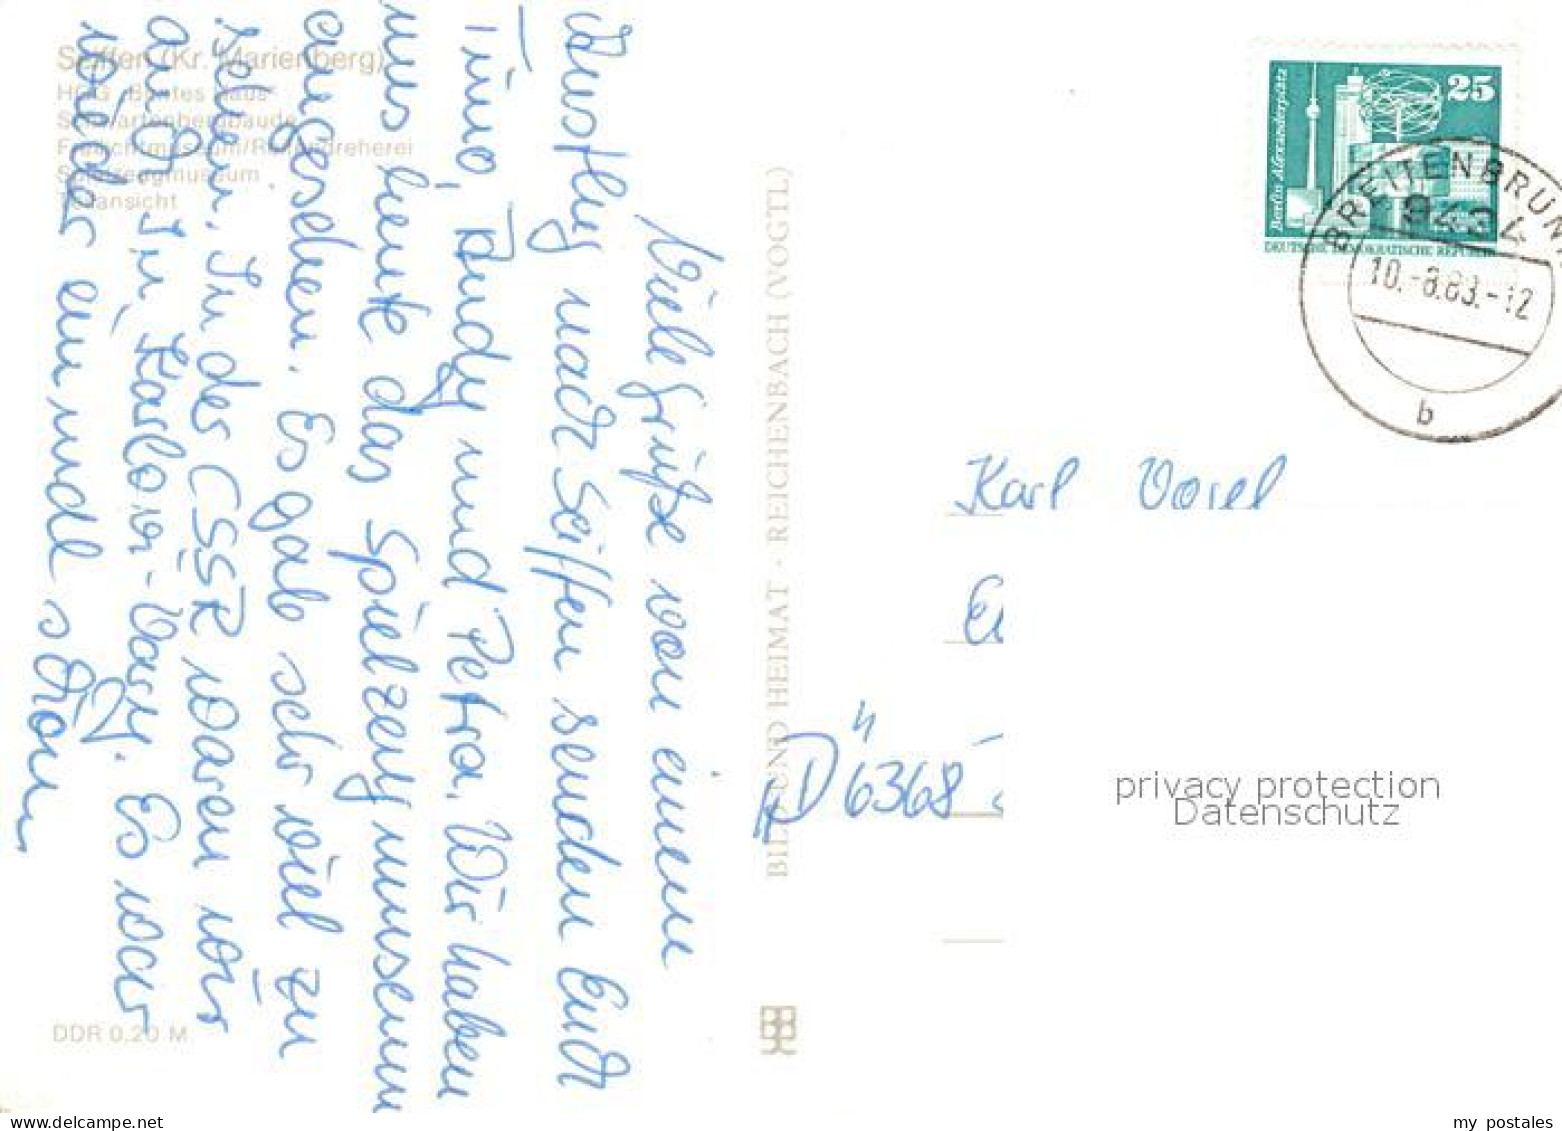 Seiffen (Kr. Marienberg)
HOG "Buntes Haus"
Schwartenbergbaude
Freilichtmuseum/Reifendreherei
Spielzeugmuseum
Teilansicht
Viele Grüße von einem
Ausflug nach Seiffen senden Euch
Timo, Randy und Petra. Wir haben
uns heute das Spielzeugmuseum
angesehen. Es gab sehr viel zu
sehen. In der CSSR waren wir
auch. In Karlovi-Vary. Es war
wieder einmal schön.
DDR 0,20 M
BILD UND HEIMAT · REICHENBACH (VOGTL)
25
Berlin, Alexanderplatz
DEUTSCHE DEMOKRATISCHE REPUBLIK
BREITENBRUNN
9434
10.-8.83.-12
b
Karl
"D" 6368
privacy protection
Datenschutz
my postales